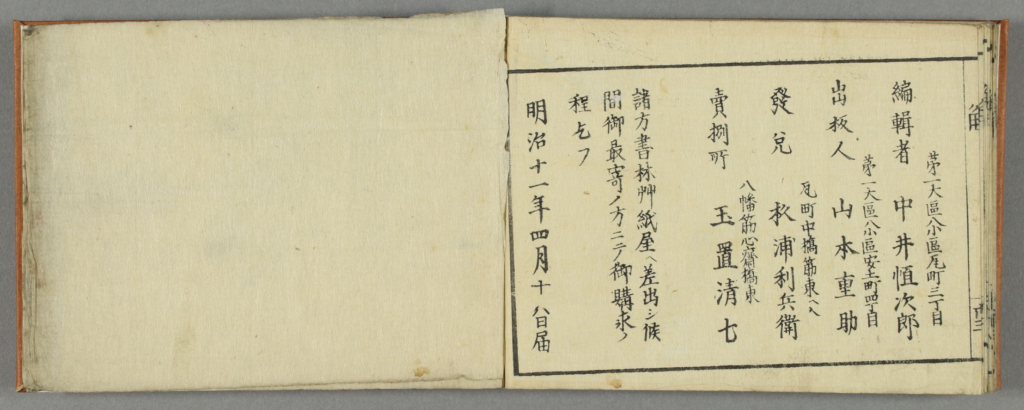 第一大區八小區瓦町三丁目
編輯者 中井恒次郎
第一大區八小區安土町四丁目
出板人 山本重助
瓦町中橋筋東ヘ入
發兌 松浦利兵衛
八幡筋心齋橋東
賣捌所 玉置清七
諸方書林艸紙屋ヘ差出シ候
間御最寄ノ方ニテ御購求ノ
程乞フ
明治十一年四月十八日届